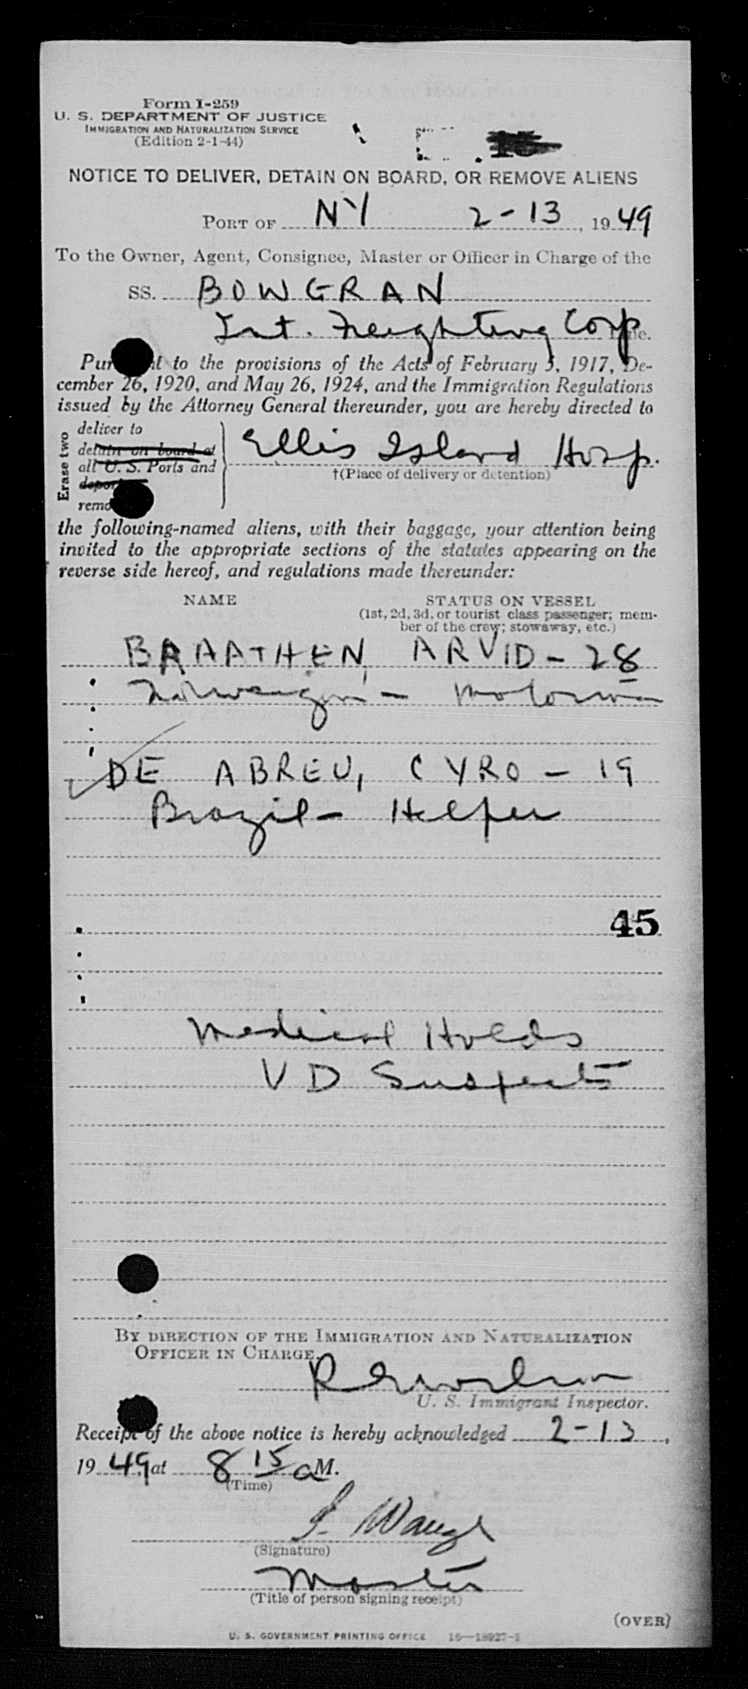 Form I-259
U. S. DEPARTMENT OF JUSTICE
IMMIGRATION AND NATURALIZATION SERVICE
(Edition 2-1-44)
NOTICE TO DELIVER, DETAIN ON BOARD, OR REMOVE ALIENS
PORT OF NY 2-13, 1949
To the Owner, Agent, Consignee, Master or Officer in Charge of the
SS. BOWGRAN
Int. Freighting Corp
to the provisions of the Acts of February 5, 1917, De-
cember 26, 1920, and May 26, 1924, and the Immigration Regulations
issued by the Attorney General thereunder, you are hereby directed to
Erase two
deliver to
detain on board at
all U. S. Ports and
Ellis Island Hosp.
†(Place of delivery or detention)
the following-named aliens, with their baggage, your attention being
invited to the appropriate sections of the statutes appearing on the
reverse side hereof, and regulations made thereunder:
NAME STATUS ON VESSEL
(1st, 2d, 3d, or tourist class passenger; mem-
ber of the crew; stowaway, etc.)
BRAATHEN, ARVID - 28
Norwegian - Motorman
DE ABREU, CYRO - 19
Brazil - Helper
45
Medical Holds
VD Suspects
BY DIRECTION OF THE IMMIGRATION AND NATURALIZATION
OFFICER IN CHARGE.
U. S. Immigrant Inspector.
Receipt of the above notice is hereby acknowledged 2-13,
1949 at 8 15 a M.
(Time)
(Signature)
Master
(Title of person signing receipt)
(OVER)
U. S. GOVERNMENT PRINTING OFFICE 16—18927-1